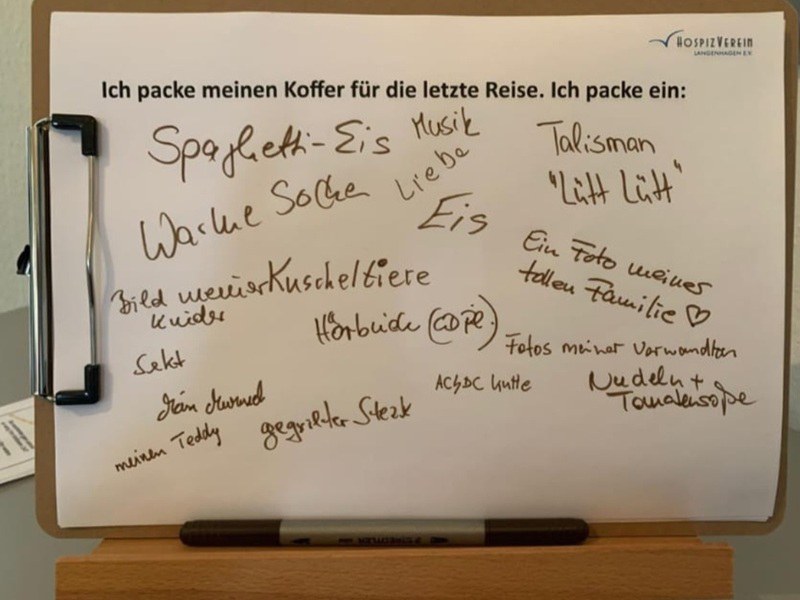 HOSPIZVEREIN
LANGENHAGEN E.V.
Ich packe meinen Koffer für die letzte Reise. Ich packe ein:
Spaghetti-Eis
Musik
Talisman
"Lütt Lütt"
Liebe
Warme Socke
Eis
Ein Foto meiner
tollen Familie ♡
Bild meiner
Kinder
Kuscheltiere
Hörbücher
Fotos meiner Verwandten
Sekt
AC/DC Kutte
Nudeln +
Tomatensoße
meinen Teddy
gegrillter Steak
STAEDTLER